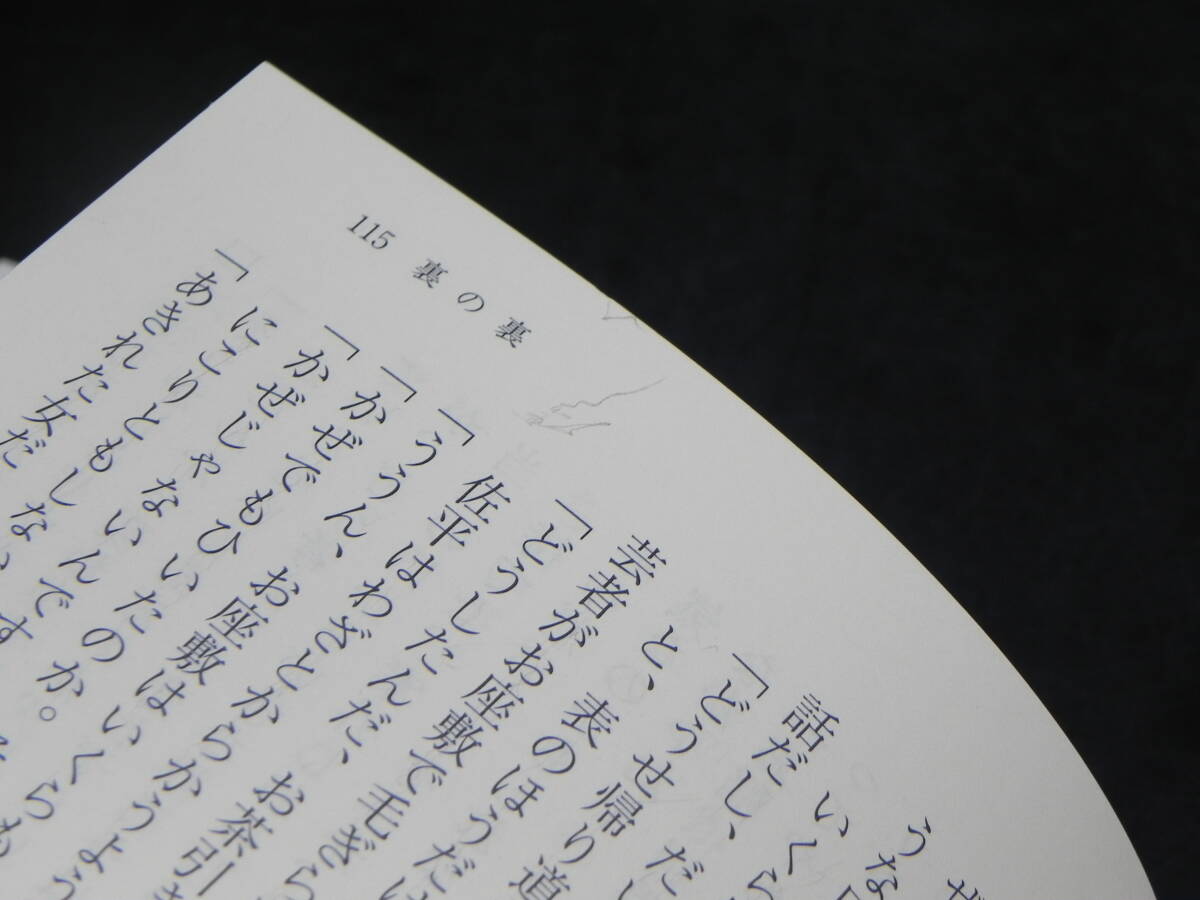 115 裏の裏
ぜ
うな
いくら
話だし、
「どうせ帰り道
と、表のほうだ
芸者がお座敷で毛ぎら
「どうしたんだ、お茶引き
佐平はわざとからかうよう
「ううん、お座敷はいくらも
「かぜでもひいたのか。
「かぜじゃないんです
にこりともしない
「あきれた女だ